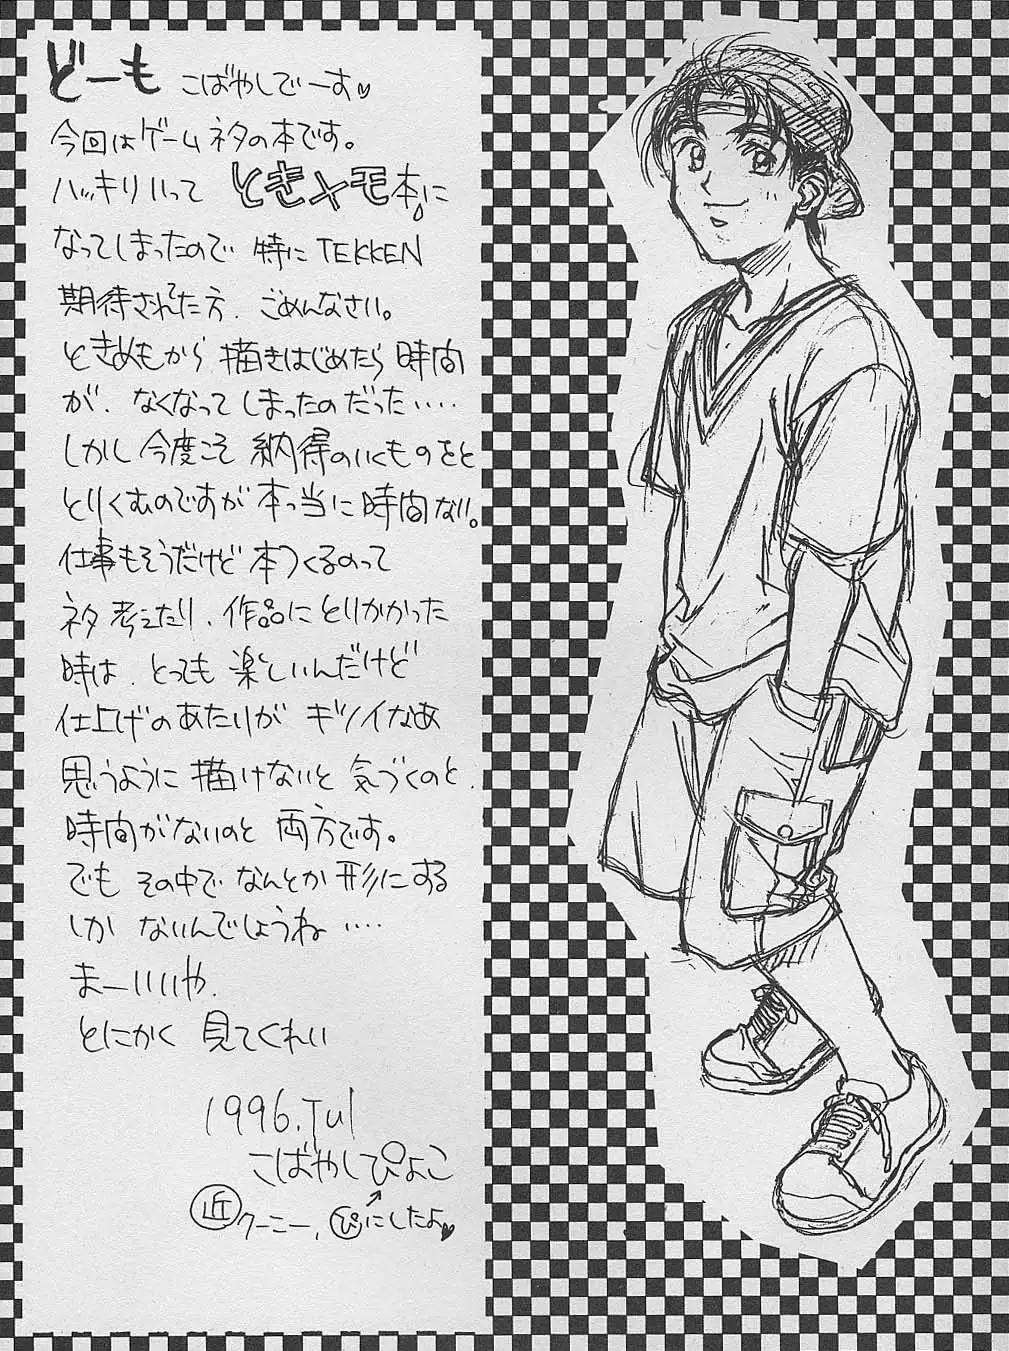 どーも こばやしでーす♡
今回はゲームネタの本です。
ハッキリいって ときメモ本に
なってしまったので 特にTEKKEN
期待されてた方、ごめんなさい。
ときめもから 描きはじめたら 時間
が、なくなってしまったのだった‥‥
しかし今度こそ 納得のいくものをと
とりくむのですが 本っ当に 時間ない。
仕事もそうだけど 本つくるのって
ネタ考えたり、作品にとりかかった
時は、とっても 楽しいんだけど
仕上げのあたりが ギツイなあ
思うように 描けないと 気づくのと、
時間がないのと 両方です。
でも その中で なんとか 形にする
しか ないんでしょうね ‥‥
まーいいや、
とにかく 見てくれい
1996.Jul
こばやしぴよこ
近 クーニー、ぴにしたよ♥